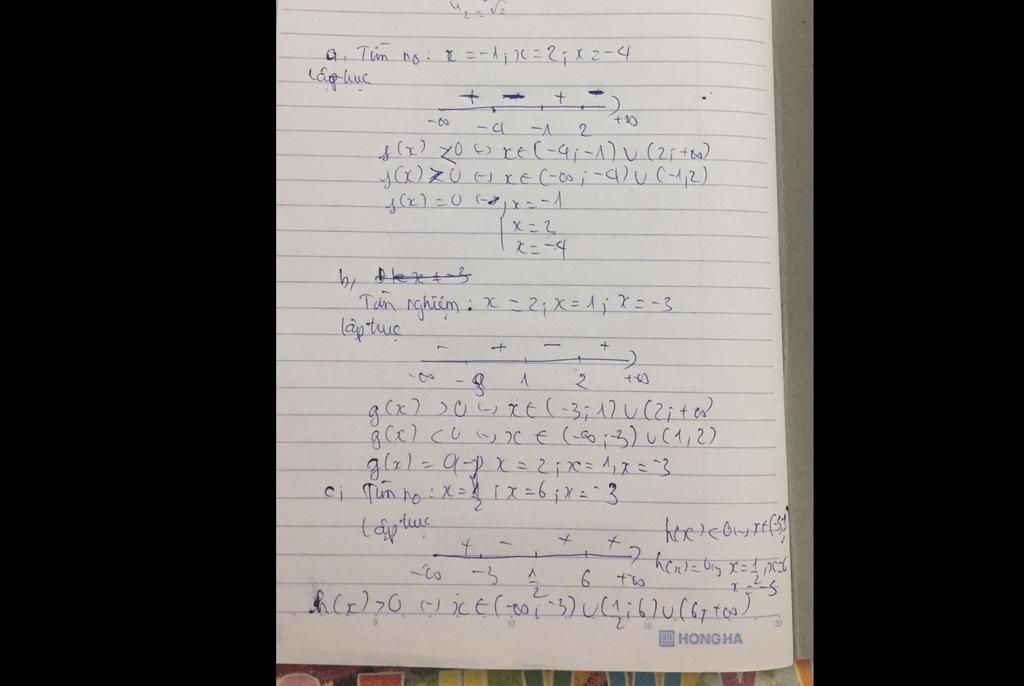 u₂ = √2
a, Tìm no: x = -1; x = 2; x = -4
Lập trục
+ - + -
-∞ -4 -1 2 +∞
f(x) <0 ↔ x∈(-4;-1)∪(2;+∞)
f(x) >0 ↔ x∈(-∞;-4)∪(-1,2)
f(x) = 0 ↔ x = -1
x = 2
x = -4
b,
Tìm nghiệm: x = 2; x = 1; x = -3
Lập trục
- + - +
-∞ -3 1 2 +∞
g(x) >0 ↔ x∈(-3;1)∪(2;+∞
g(x) <0 ↔ x ∈ (-∞;-3)∪(1,2)
g(x) = 0 ↔ x = 2; x = 1, x = -3
c, Tìm no: x = 1/2; x = 6; x = -3
Lập trục
+ - + +
-∞ -3 1/2 6 +∞
h(x) <0 ↔ x∈(-3;
h(x) = 0 ↔ x = 1/2, x=6
x = -3
h(x) >0 ↔ x∈(-∞;-3)∪(1/2;6)∪(6,+∞)
5 10 15 20
HONG HA